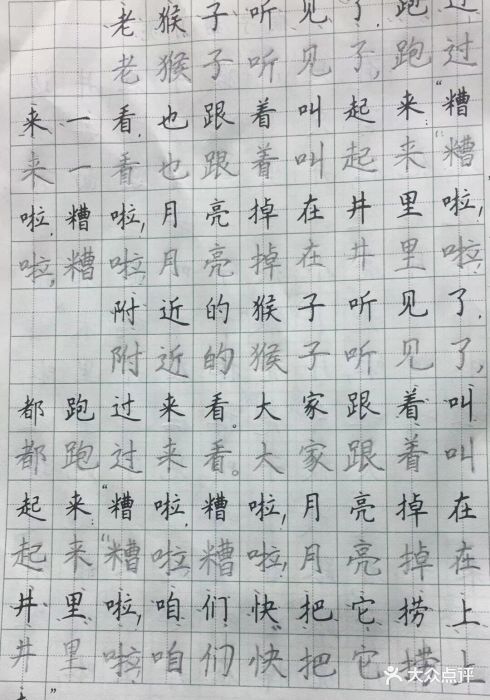 老猴子听见了,跑过
老猴子听见了,跑过
来一看,也跟着叫起来“糟
来一看也跟着叫起来“糟
啦,糟啦,月亮掉在井里啦,
啦,糟啦,月亮掉在井里啦,
附近的猴子听见了,
附近的猴子听见了,
都跑过来看。大家跟着叫
都跑过来看。大家跟着叫
起来“糟啦,糟啦,月亮掉在
起来“糟啦,糟啦,月亮掉在
井里啦,咱们快把它捞上
井里啦,咱们快把它捞上
”
大众点评